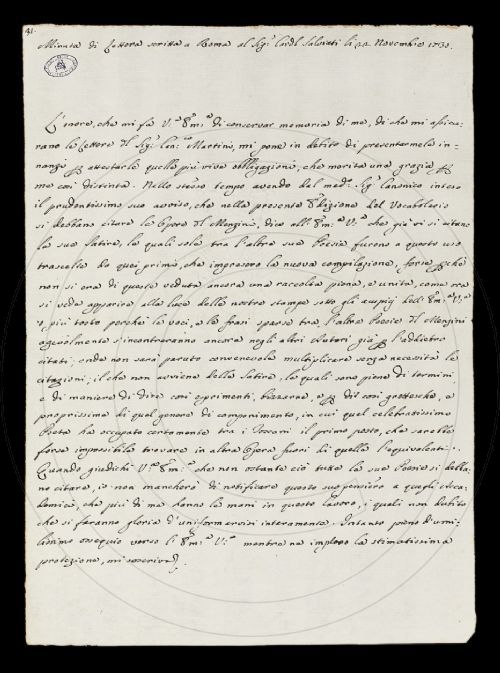 31.
Minuta di Lettera scritta a Roma al Sig.r Card.l Salviati li 22 Novembre 1730.
L'onore, che mi fà V.ª Em.ª di conservar memoria di me, di che mi assicu=
rano le Lettere del Sig.r Can.co Martini, mi pone in debito di presentarmele in=
nanzi p attestarle quelle più vive obbligazioni, che merita una grazia p
me così distinta. Nello stesso tempo avendo dal med.o Sig.r Canonico inteso
il prudentissimo suo avviso, che nella presente Edizione del Vocabolario
si debbano citare le Opere del Menzini, dico all' Em.ª V.ª che già vi si citano
le sue Satire, le quali sole tra l'altre sue Poesie furono a questo uso
trascelte da quei primi, che impresero la nuova compilazione, forse pchè
non si era di queste veduta ancora una raccolta piena, e unita, come ora
si vede apparire alla luce dalle nostre stampe sotto gli auspizj dell' Em.ª V.ª
o, più tosto perchè le voci, e le frasi sparse tra l'altre Poesie del Menzini
agevolmente s'incontreranno ancora negli altri Autori già p l'addietro
citati; onde non sarà paruto convenevole multiplicare senza necessità le
citazioni; il che non avviene delle Satire, le quali sono piene di termini,
e di maniere di dire così esprimenti, bizzarre, e p dir così grottesche, e
propriissime di quel genere di componimento, in cui quel celebratissimo
Poeta ha occupato certamente tra i Toscani il primo posto, che sarebbe
forse impossibile trovare in altra Opera fuori di quelle l'equivalenti.
Quando giudichi V.ª Em.ª che non ostante ciò tutte le sue Poesie si debba=
no citare, io non mancherò di notificare questo suo pensiero a quegli Acca=
demici, che più di me hanno le mani in questo lavoro, i quali non dubito,
che si faranno gloria d'uniformarvisi interamente. Intanto pieno d'umi=
lissimo ossequio verso l' Em.ª V.ª mentre ne imploro la stimatissima
protezione, mi soscrivo